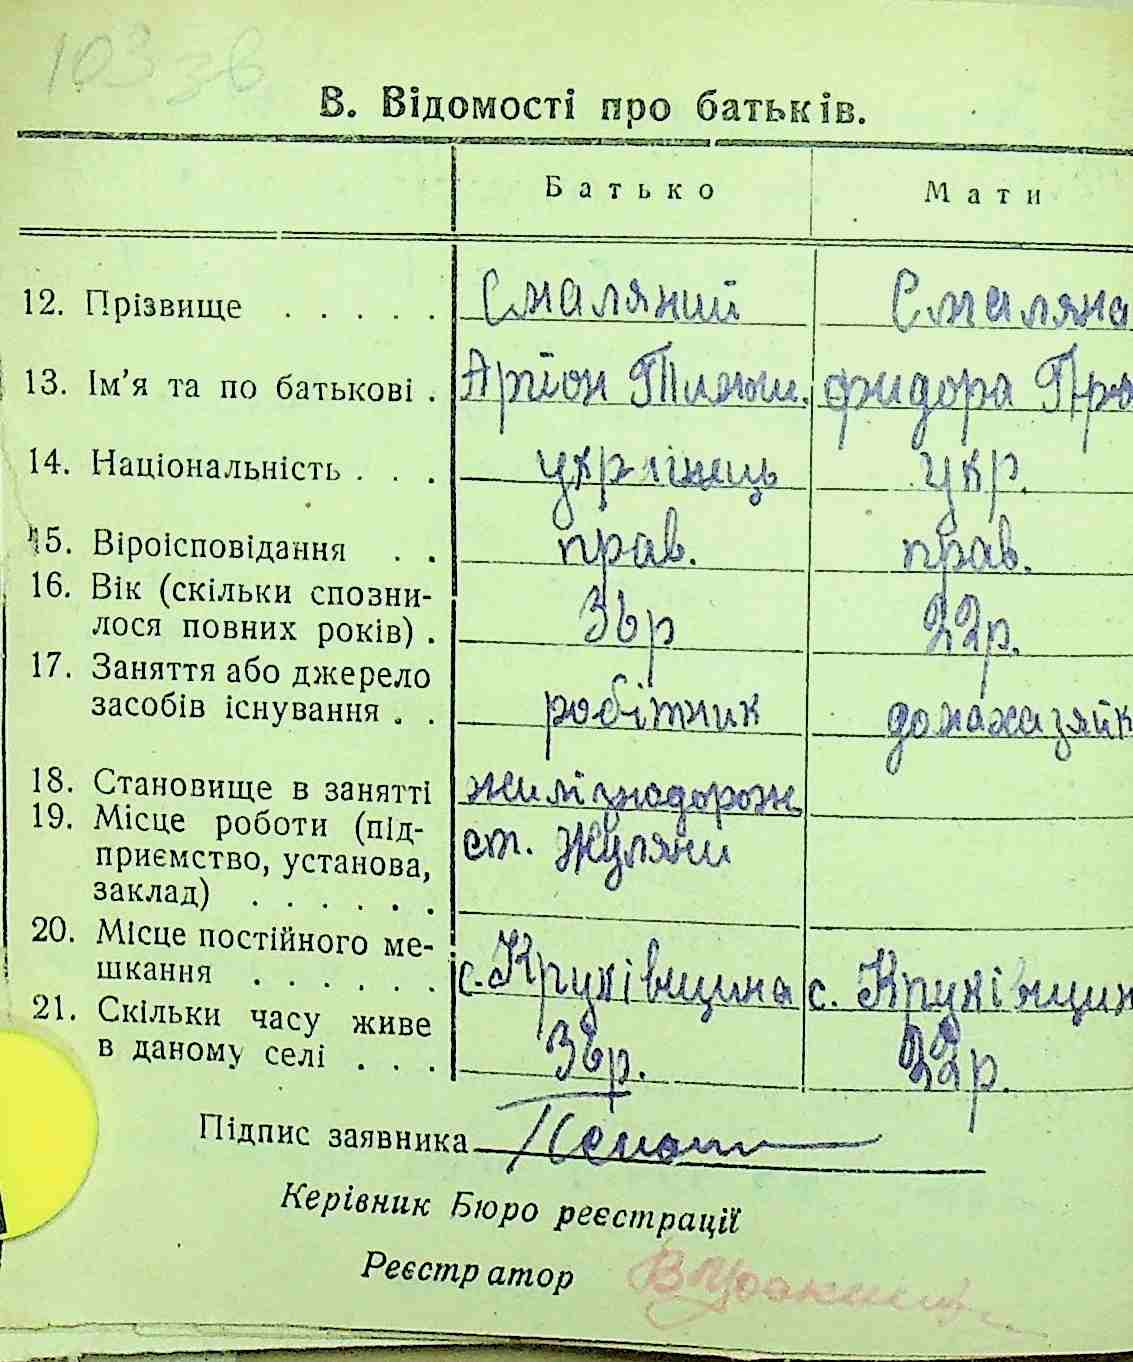 103 зв
В. Відомості про батьків.
Батько Мати
12. Прізвище . . . . . Смаляний Смаляна
13. Ім'я та по батькові . Аріон Тимош. Фидора Про
14. Національність . . . українець укр.
15. Віроісповідання . . прав. прав.
16. Вік (скільки спозни-
лося повних років) . 36р 22р.
17. Заняття або джерело
засобів існування . . робітник домахазяйк
18. Становище в занятті желізнодорож
19. Місце роботи (під- ст. Жуляни
приємство, установа,
заклад) . . . . . .
20. Місце постійного ме-
шкання . . . . . . с. Крухівщина с. Крухівщин
21. Скільки часу живе
в даному селі . . . 36р. 22р.
Підпис заявника
Керівник Бюро реєстрації
Реєстратор